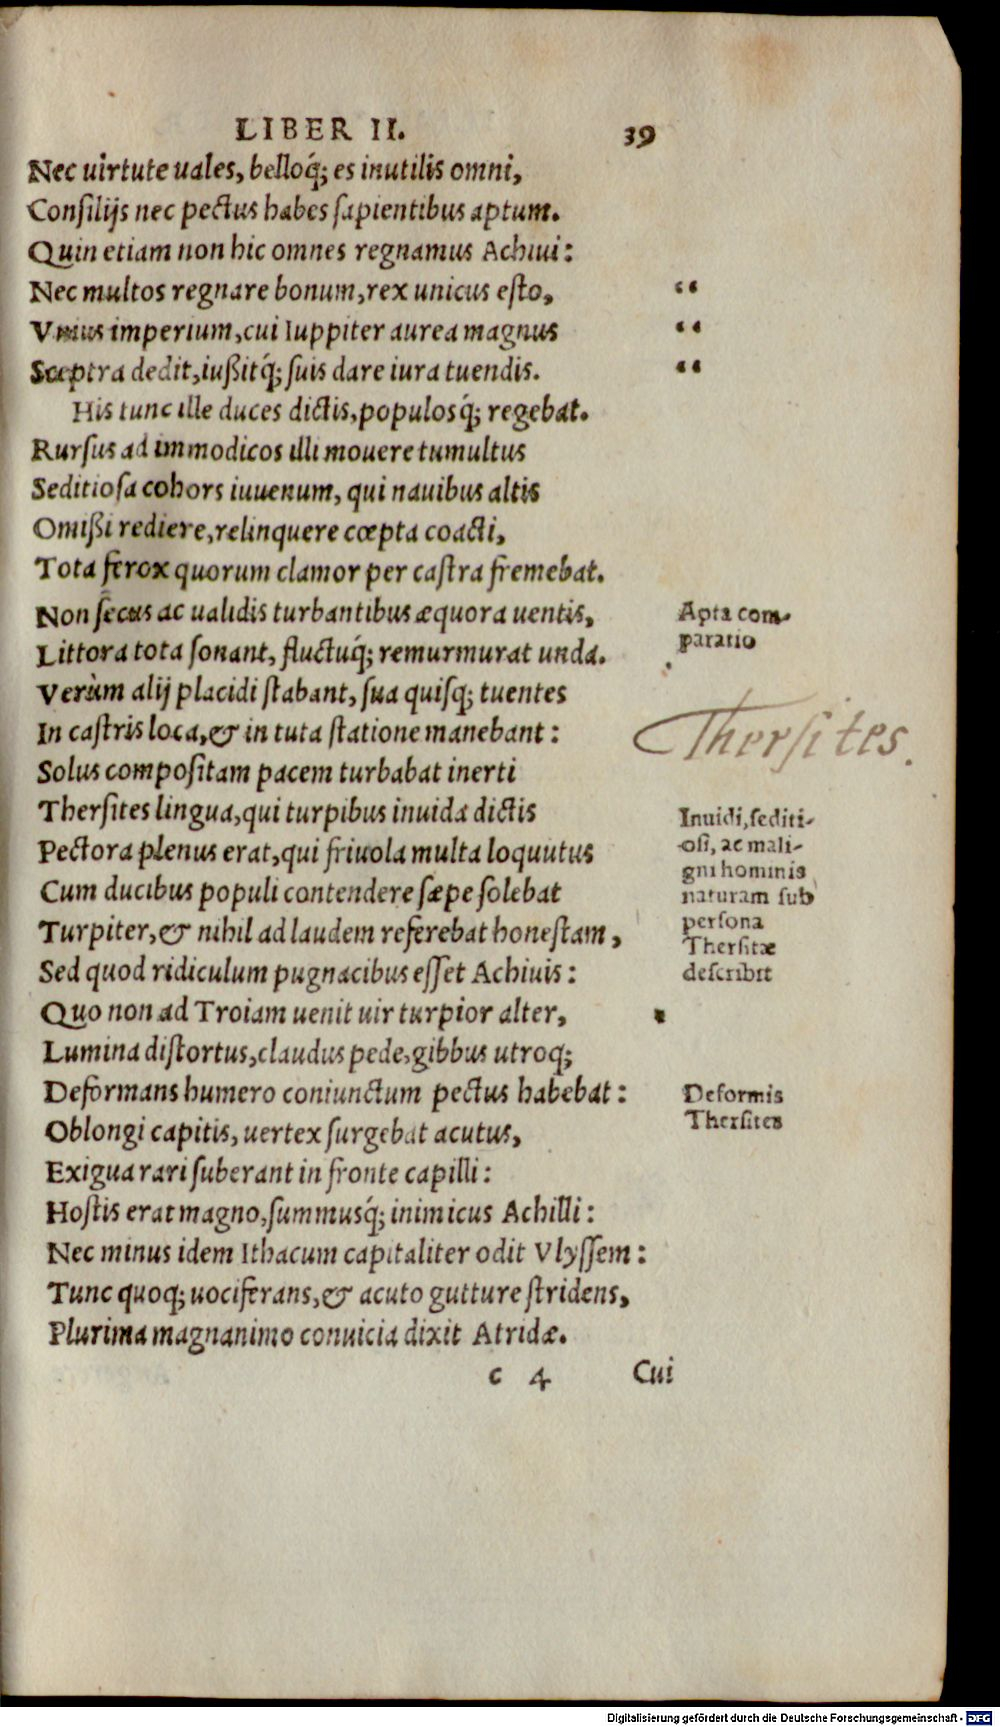 LIBER II. 39
Nec uirtute uales, belloq́; es inutilis omni,
Consilijs nec pectus habes sapientibus aptum.
Quin etiam non hic omnes regnamus Achiui:
Nec multos regnare bonum, rex unicus esto, “
Vnius imperium, cui Iuppiter aurea magnus “
Sceptra dedit, iußitq́; suis dare iura tuendis. “
His tunc ille duces dictis, populosq́; regebat.
Rursus ad immodicos illi mouere tumultus
Seditiosa cohors iuuenum, qui nauibus altis
Omißi rediere, relinquere cœpta coacti,
Tota ferox quorum clamor per castra fremebat.
Non secus ac ualidis turbantibus æquora uentis,
Littora tota sonant, fluctuq́; remurmurat unda.
Apta com-
paratio
Verùm alij placidi stabant, sua quisq; tuentes
In castris loca, & in tuta statione manebant:
Thersites.
Solus compositam pacem turbabat inerti
Thersites lingua, qui turpibus inuida dictis
Pectora plenus erat, qui friuola multa loquutus
Cum ducibus populi contendere sæpe solebat
Turpiter, & nihil ad laudem referebat honestam,
Sed quod ridiculum pugnacibus esset Achiuis:
Inuidi, sediti-
osi, ac mali-
gni hominis
naturam sub
persona
Thersitæ
describit
Quo non ad Troiam uenit uir turpior alter,
Lumina distortus, claudus pede, gibbus utroq;
Deformans humero coniunctum pectus habebat:
Oblongi capitis, uertex surgebat acutus,
Deformis
Thersites
Exigua rari suberant in fronte capilli:
Hostis erat magno, summusq́; inimicus Achilli:
Nec minus idem Ithacum capitaliter odit Vlyssem:
Tunc quoq; uociferans, & acuto gutture stridens,
Plurima magnanimo conuicia dixit Atridæ.
c 4 Cui
Digitalisierung gefördert durch die Deutsche Forschungsgemeinschaft - DFG